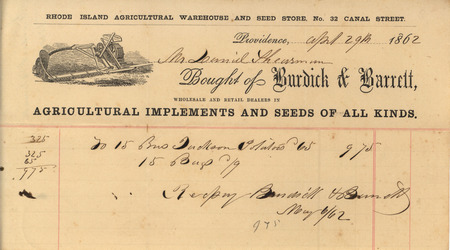 RHODE ISLAND AGRICULTURAL WAREHOUSE AND SEED STORE, No. 32 CANAL STREET.
Providence, Apl 29th 1862
Mr Daniel Shearman
Bought of Burdick & Barrett,
WHOLESALE AND RETAIL DEALERS IN
AGRICULTURAL IMPLEMENTS AND SEEDS OF ALL KINDS.
325 To 15 Bus Jackson Potatoes 65 975
325
65
975
15 Bags
Burdick & Barrett
May 6/62
975